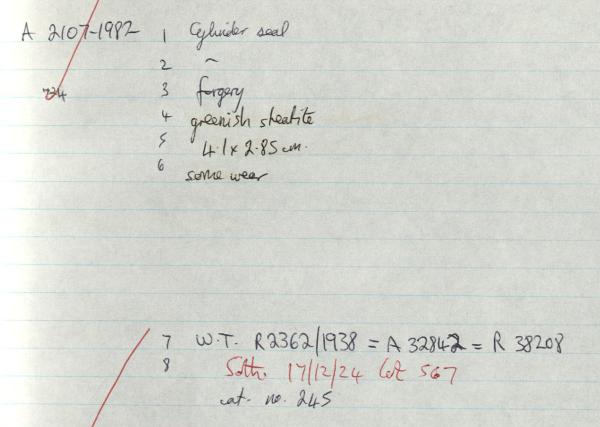 A 2107-1982 1 Cylinder seal
2 ~
734 3 forgery
4 greenish steatite
5 4.1 x 2.85 cm.
6 some wear
7 W.T. R2362/1938 = A 32842 = R 38208
8 Soth. 17/12/24 lot 567
cat. no. 245